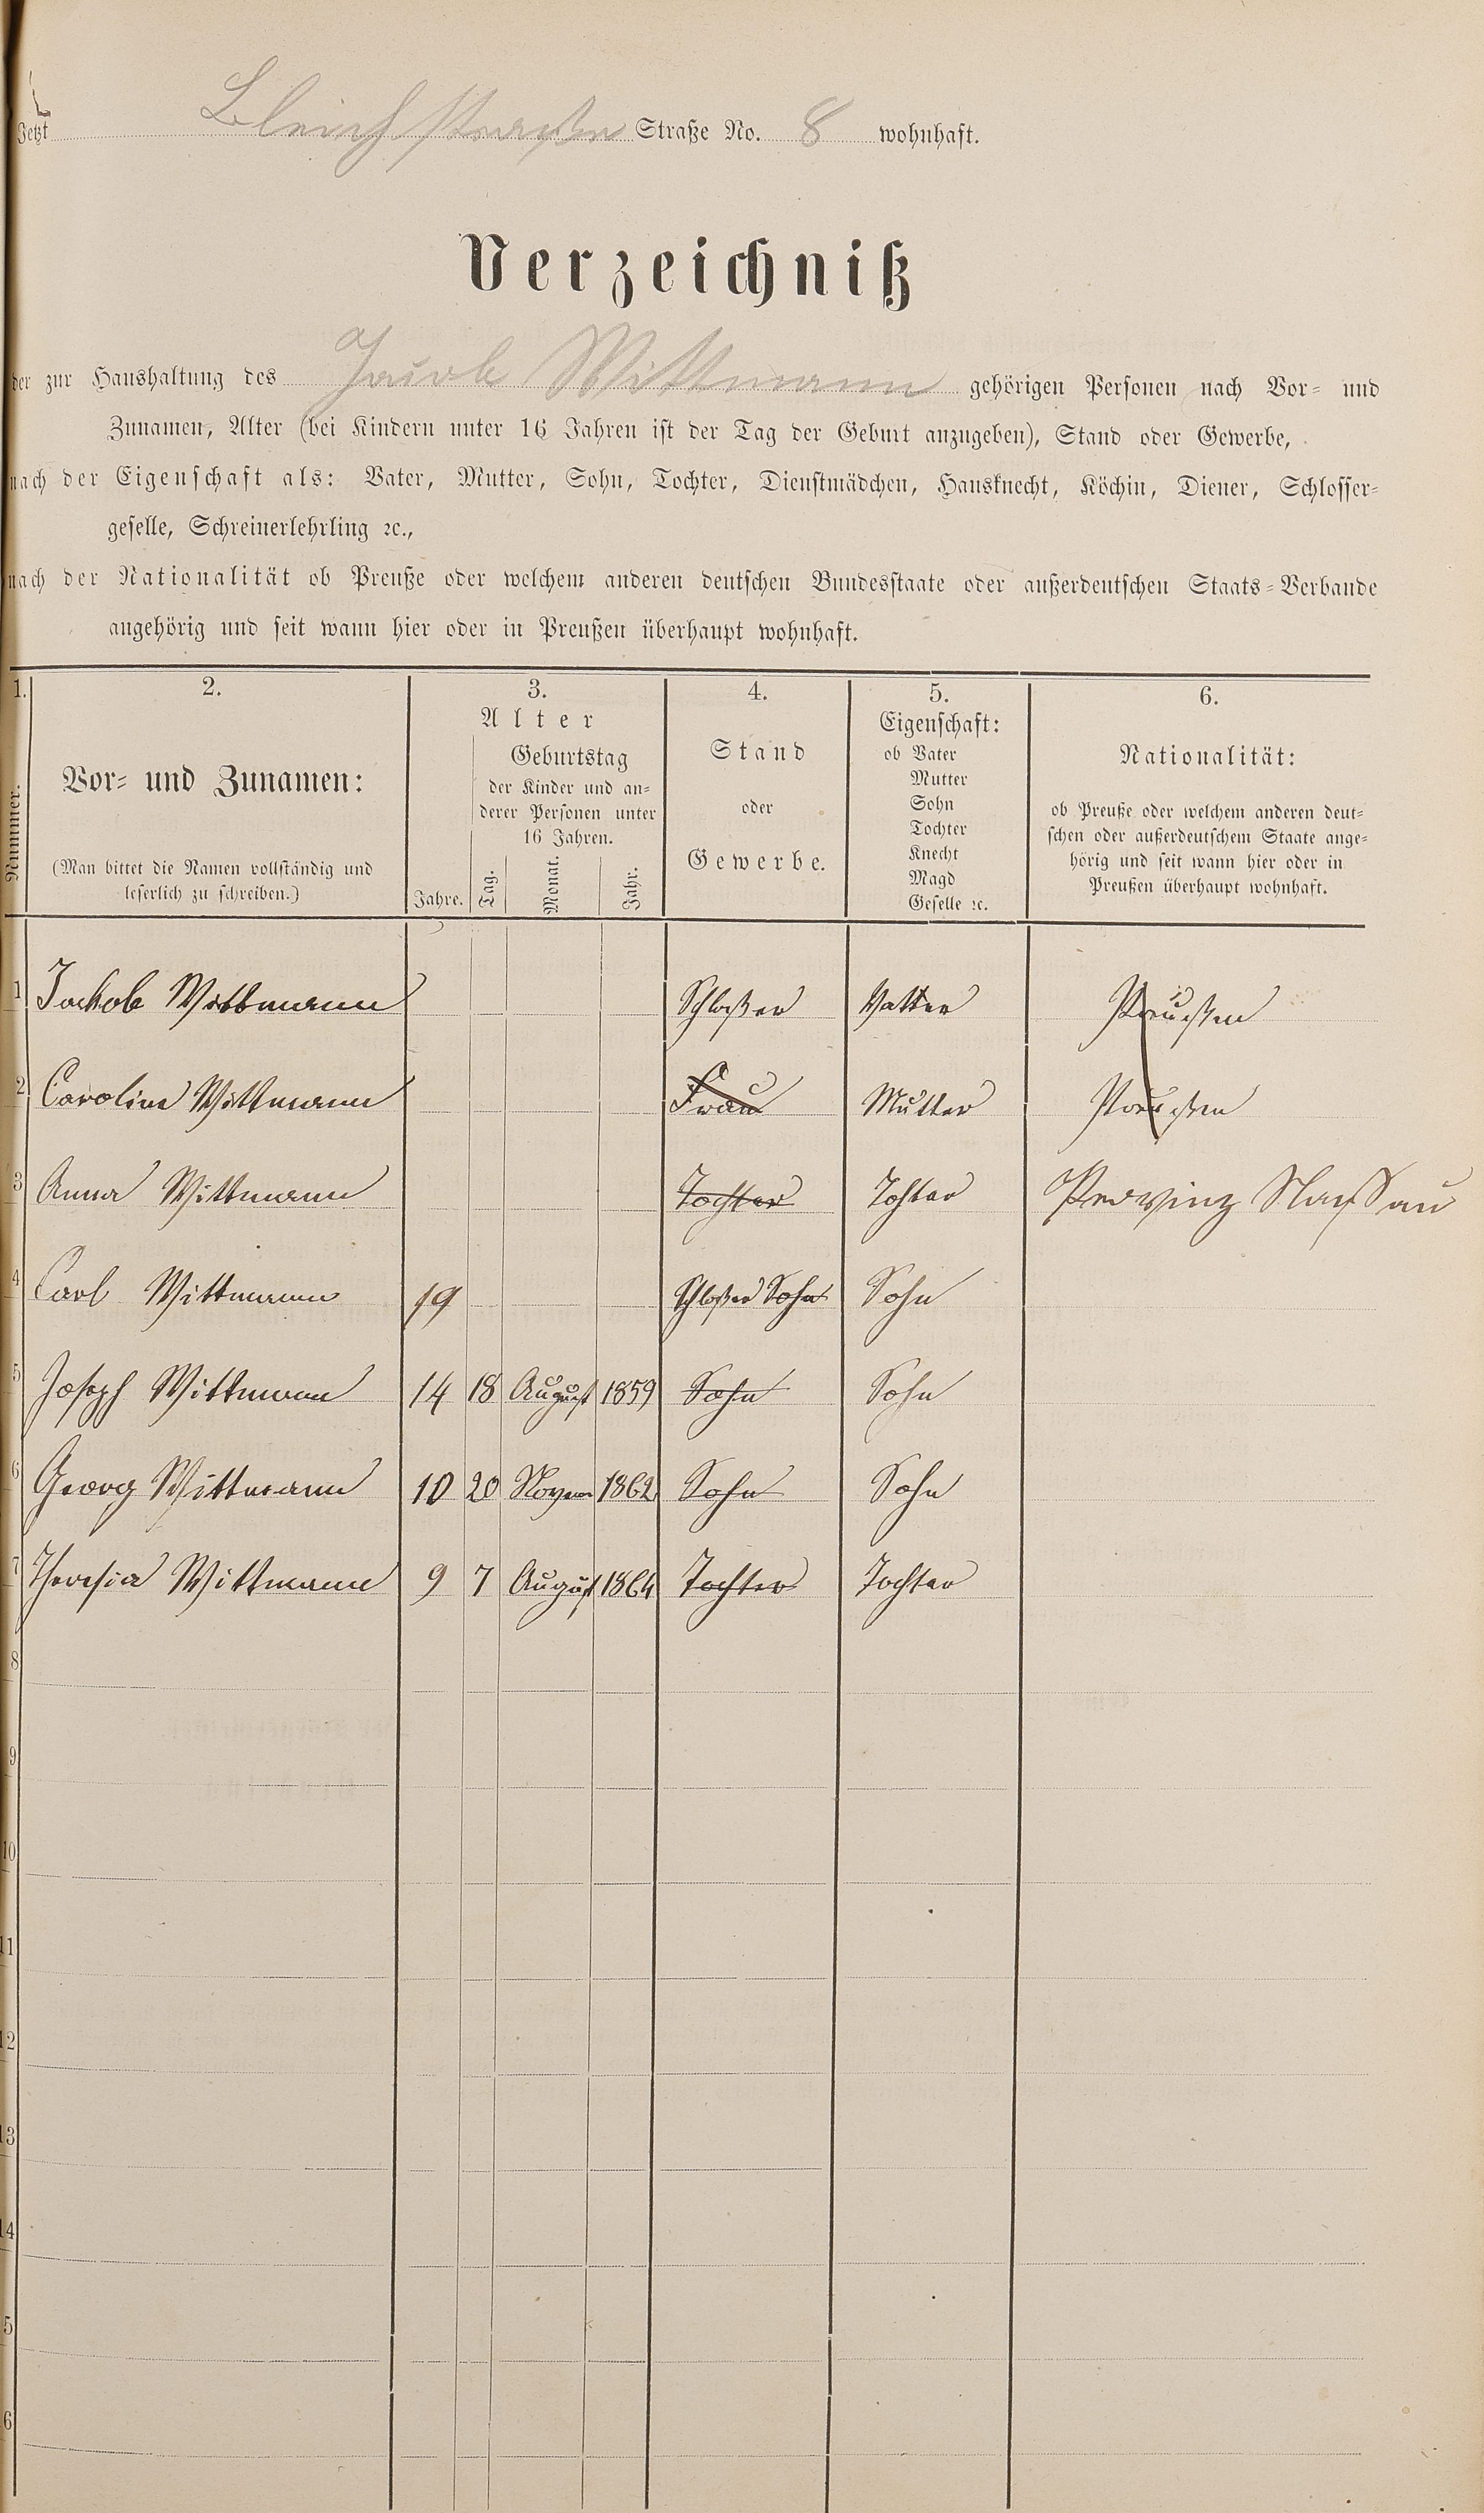 Jetzt Bleichstraße Straße No. 8 wohnhaft.
Verzeichniß
der zur Haushaltung des Jacob Wittmann gehörigen Personen nach Vor- und
Zunamen, Alter (bei Kindern unter 16 Jahren ist der Tag der Geburt anzugeben), Stand oder Gewerbe,
nach der Eigenschaft als: Vater, Mutter, Sohn, Tochter, Dienstmädchen, Hausknecht, Köchin, Diener, Schlosser-
geselle, Schreinerlehrling ꝛc.,
nach der Nationalität ob Preuße oder welchem anderen deutschen Bundesstaate oder außerdeutschen Staats-Verbande
angehörig und seit wann hier oder in Preußen überhaupt wohnhaft.
1.
Nummer.
2.
Vor- und Zunamen:
(Man bittet die Namen vollständig und
leserlich zu schreiben.)
3.
Alter
Jahre.
Geburtstag
der Kinder und an-
derer Personen unter
16 Jahren.
Tag. Monat. Jahr.
4.
Stand
oder
Gewerbe.
5.
Eigenschaft:
ob Vater
Mutter
Sohn
Tochter
Knecht
Magd
Geselle ꝛc.
6.
Nationalität:
ob Preuße oder welchem anderen deut-
schen oder außerdeutschem Staate ange-
hörig und seit wann hier oder in
Preußen überhaupt wohnhaft.
1 Jackob Wittmann Schloßer Vatter Preußen
2 Carolina Wittmann Frau Mutter Preußen
3 Anna Wittmann Tochter Tohter Provinz Nassau
4 Carl Wittmann 19 Schloßer Sohn Sohn
5 Joseph Wittmann 14 18 August 1859 Sohn Sohn
6 Georg Wittmann 10 20 Novem 1862 Sohn Sohn
7 Theresia Wittmann 9 7 August 1864 Tochter Tochter
8
9
10
11
12
13
14
5
6